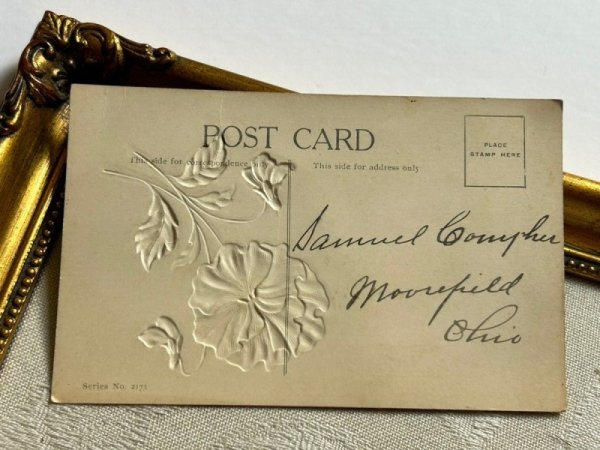 POST CARD
This side for correspondence only
This side for address only
PLACE
STAMP HERE
Samuel
Moorefield
Ohio
Series No. 2171